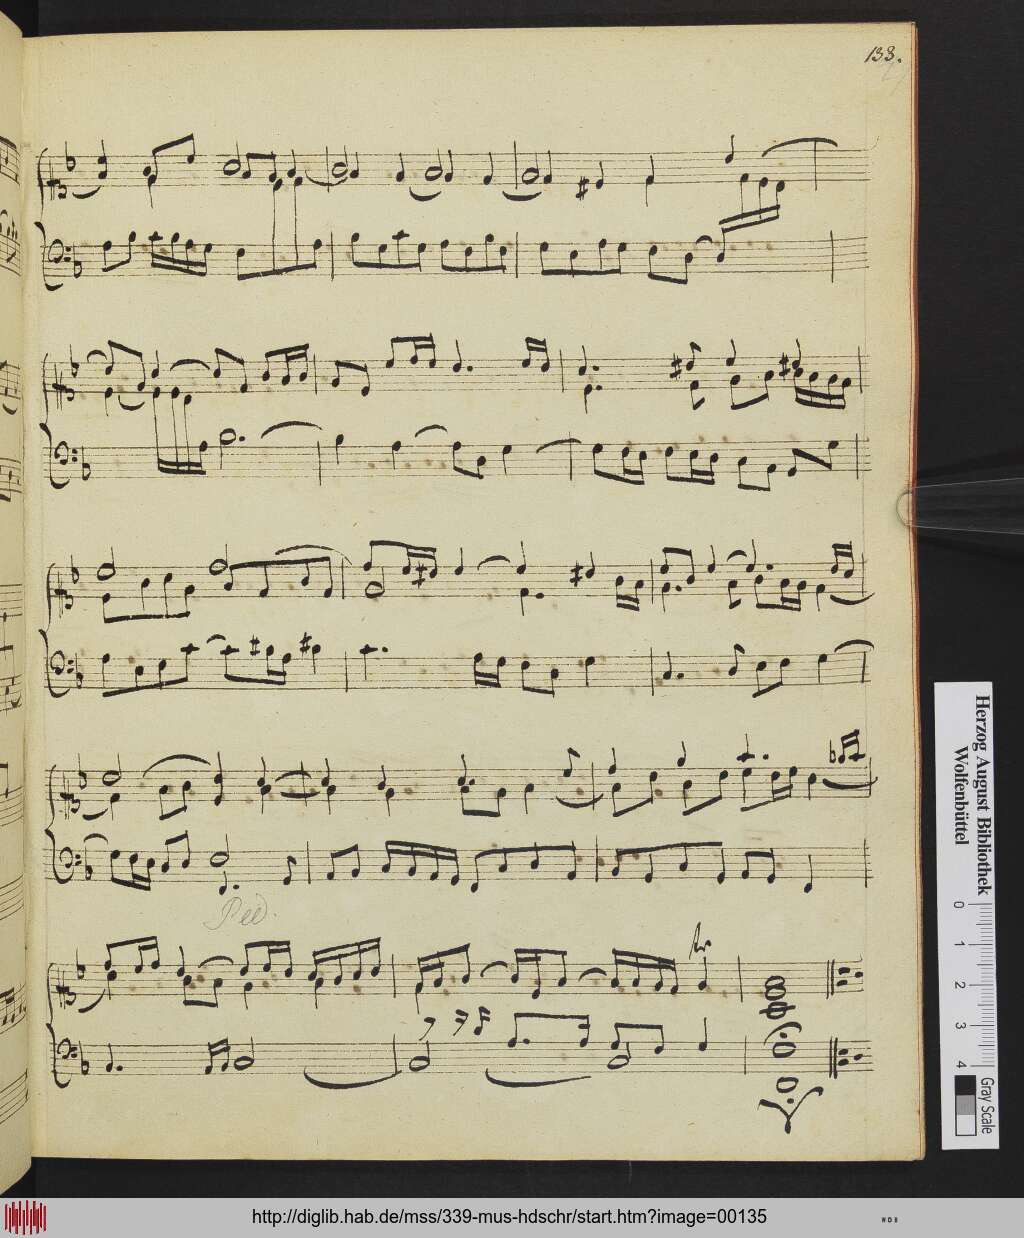 133.
Ped.
tr
Herzog August Bibliothek
Wolfenbüttel
0 1 2 3 4
Gray Scale
http://diglib.hab.de/mss/339-mus-hdschr/start.htm?image=00135